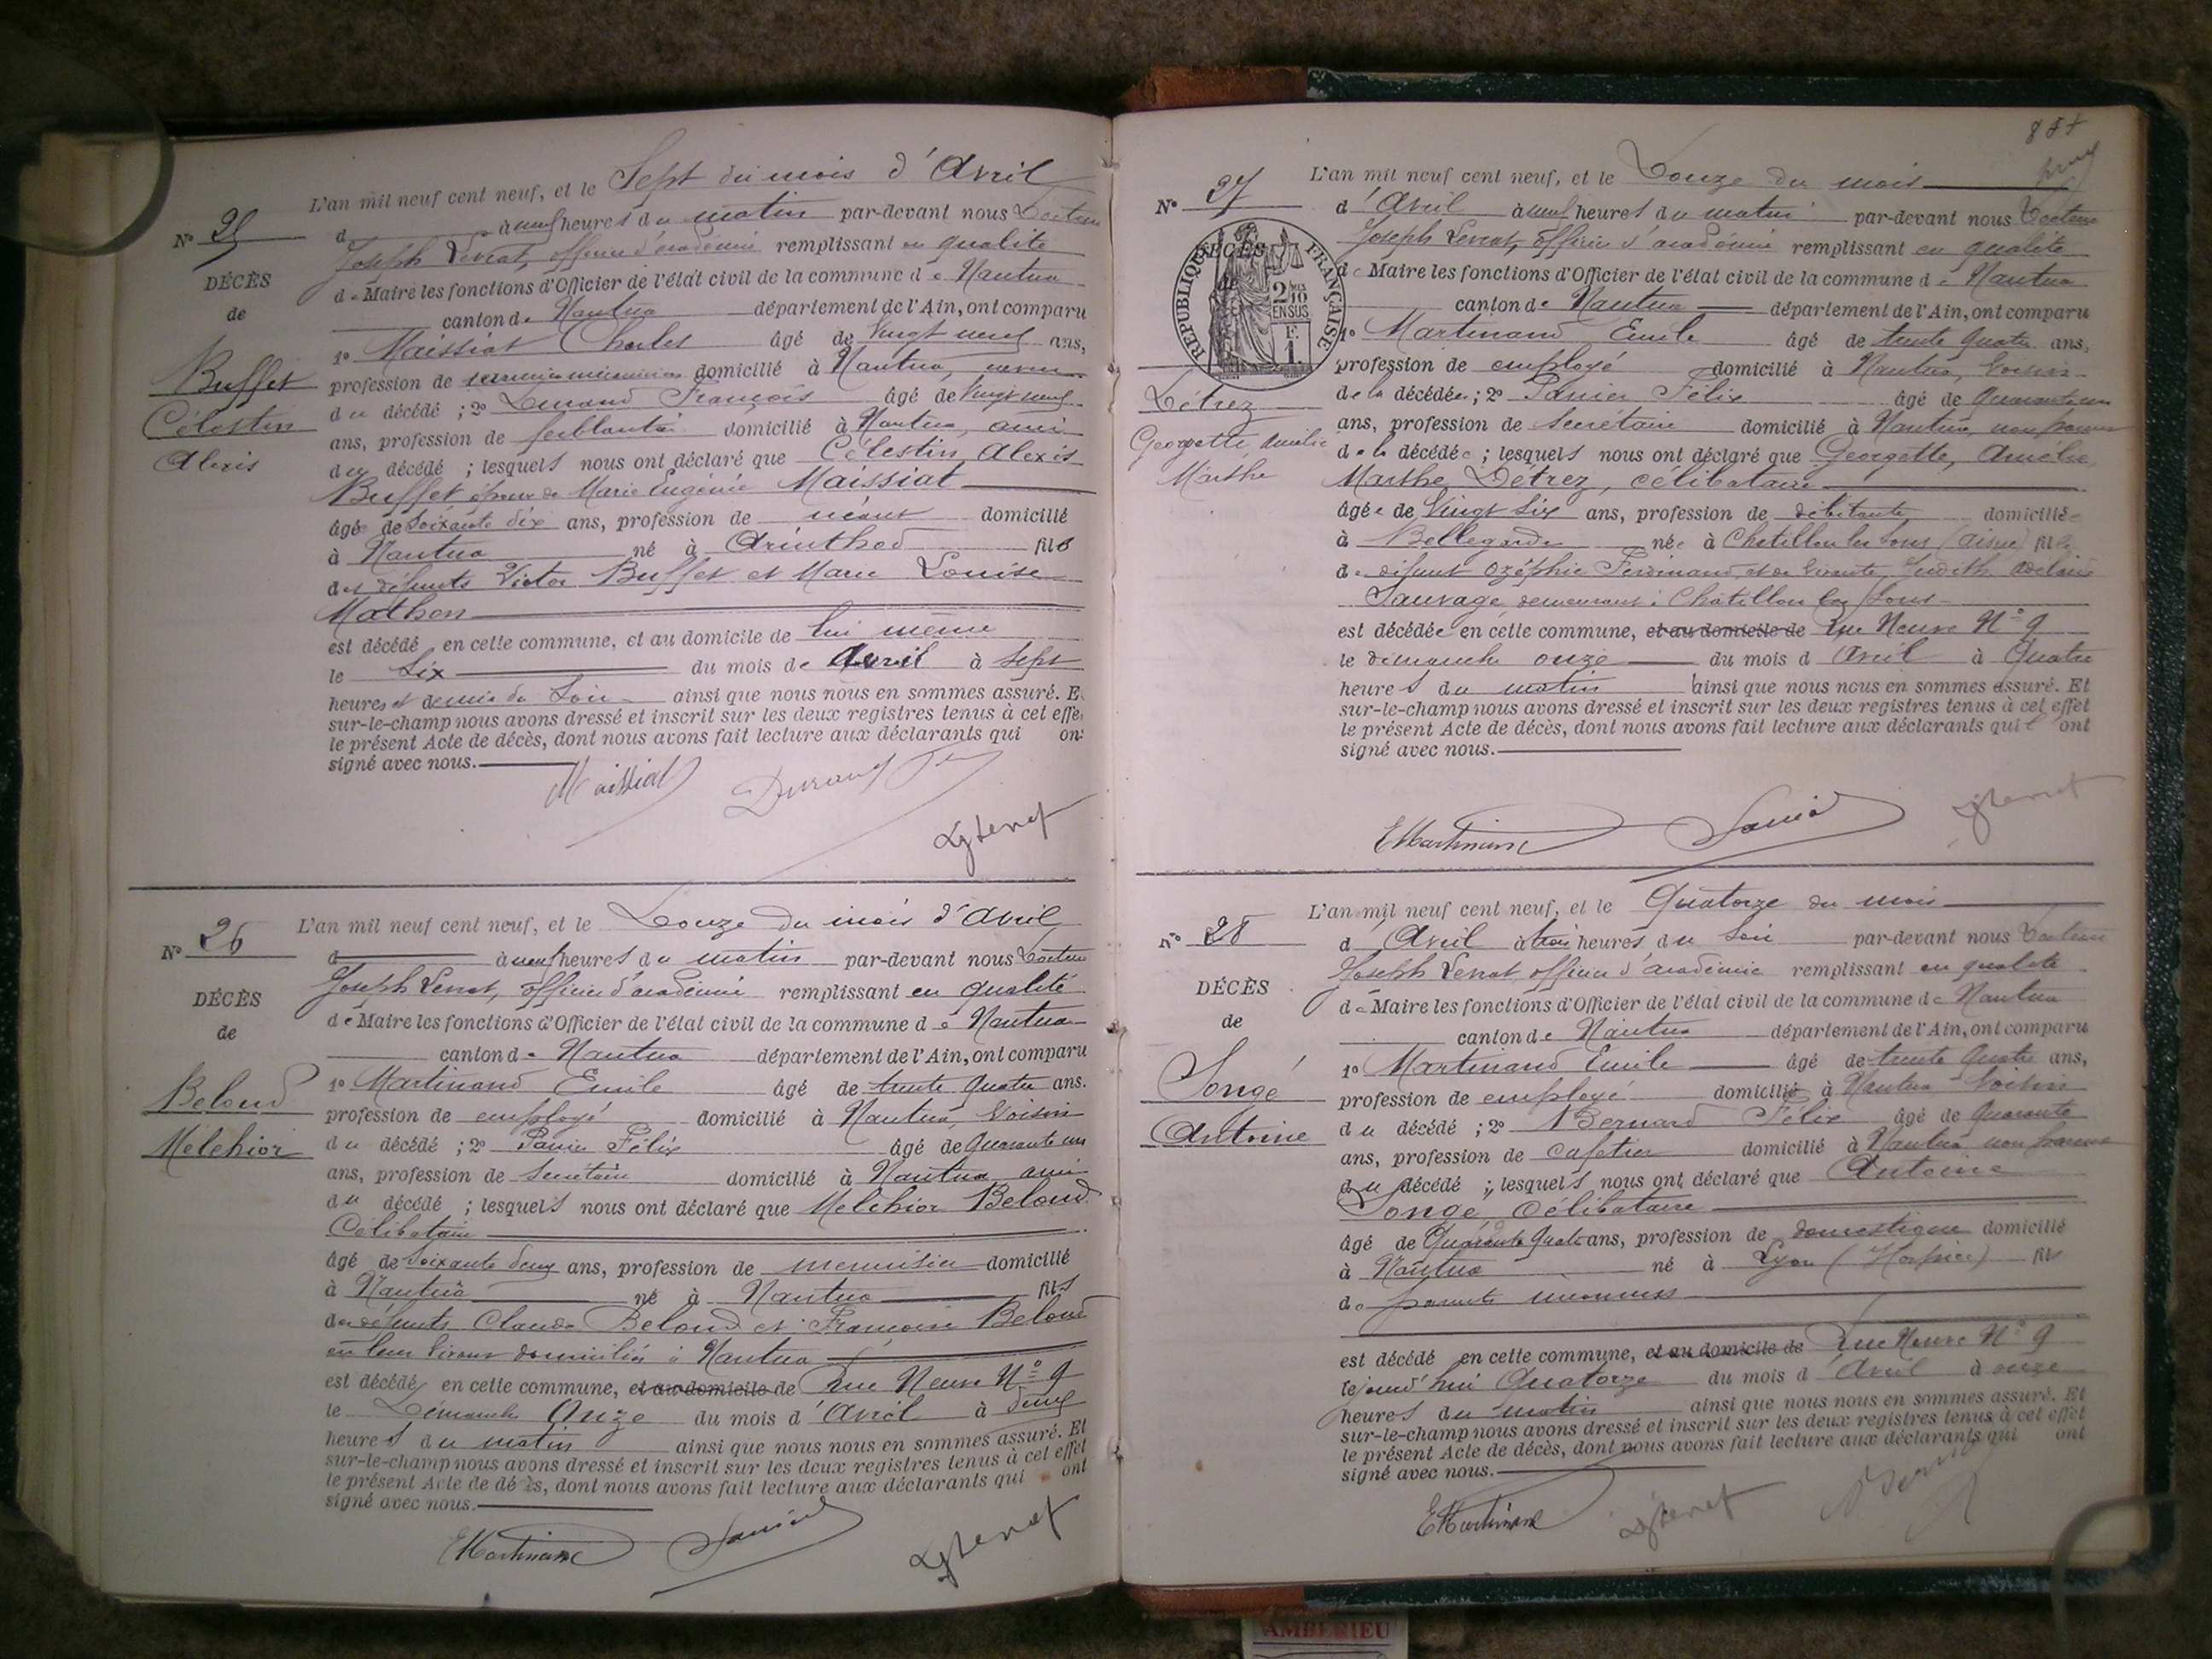 L'an mil neuf cent neuf, et le Sept du mois d'Avril
N° 25
d à neuf heures du matin par-devant nous Docteur
Joseph Levrat, officier d'académie remplissant en qualité
DÉCÈS
de Maire les fonctions d'Officier de l'état civil de la commune de Nantua
de
canton de Nantua département de l'Ain, ont comparu
1° Maissiat Charles âgé de vingt neuf ans,
Buffet
profession de domicilié à Nantua, neveu
du décédé ; 2° Durand François âgé de vingt neuf
Célestin
ans, profession de ferblantier domicilié à Nantua, ami
Alexis
du décédé ; lesquels nous ont déclaré que Célestin, Alexis
Buffet époux de Marie Eugénie Maissiat
âgé de soixante dix ans, profession de néant domicilié
à Nantua né à Arinthod fils
des défunts Victor Buffet et Marie Louise
Mathon
est décédé en cette commune, et au domicile de lui même
le Six du mois de Avril à sept
heures et demie du Soir ainsi que nous nous en sommes assuré. E
sur-le-champ nous avons dressé et inscrit sur les deux registres tenus à cet effe
le présent Acte de décès, dont nous avons fait lecture aux déclarants qui on
signé avec nous.
Maissiat Durand
L'an mil neuf cent neuf, et le Douze du mois d'Avril
N° 26
d à neuf heures du matin par-devant nous Docteur
Joseph Levrat, officier d'académie remplissant en qualité
DÉCÈS
de Maire les fonctions d'Officier de l'état civil de la commune de Nantua
de
canton de Nantua département de l'Ain, ont comparu
1° Martinand Emile âgé de trente quatre ans.
Beloud
profession de employé domicilié à Nantua, Voisin
Melchior
du décédé ; 2° Panier Félix âgé de Quarante un
ans, profession de Secrétaire domicilié à Nantua ami
du décédé ; lesquels nous ont déclaré que Melchior Beloud
Célibataire
âgé de Soixante deux ans, profession de menuisier domicilié
à Nantua né à Nantua fils
des défunts Claude Beloud et Françoise Beloud
en leur vivant domiciliés à Nantua
est décédé en cette commune, et au domicile de Rue Neuve N° 9
le Dimanche Onze du mois d'Avril à deux
heures du matin ainsi que nous nous en sommes assuré. Et
sur-le-champ nous avons dressé et inscrit sur les deux registres tenus à cet effet
le présent Acte de décès, dont nous avons fait lecture aux déclarants qui ont
signé avec nous.
EMartinand
L'an mil neuf cent neuf, et le Douze du mois
N° 27
d'Avril à neuf heures du matin par-devant nous Docteur
Joseph Levrat, officier d'académie remplissant en qualité
DÉCÈS
de
RÉPUBLIQUE FRANÇAISE
2/10 EN SUS
F. 1
de Maire les fonctions d'Officier de l'état civil de la commune de Nantua
canton de Nantua département de l'Ain, ont comparu
1° Martinand Emile âgé de trente quatre ans,
profession de employé domicilié à Nantua, Voisin
Détrez
de la décédée ; 2° Panier Félix âgé de Quarante un
Georgette, Amélie
ans, profession de Secrétaire domicilié à Nantua, non parent
Marthe
de la décédée ; lesquels nous ont déclaré que Georgette, Amélie,
Marthe Détrez, célibataire
âgée de Vingt Six ans, profession de débitante domiciliée
à Bellegarde née à Chatillon les Sons (Aisne) fille
de défunt Ozéphie Ferdinand et de vivante, Judith
Sauvage, demeurant à Châtillon les Sons
est décédée en cette commune, et au domicile de Rue Neuve N° 9
le dimanche onze du mois d'Avril à Quatre
heures du matin ainsi que nous nous en sommes assuré. Et
sur-le-champ nous avons dressé et inscrit sur les deux registres tenus à cet effet
le présent Acte de décès, dont nous avons fait lecture aux déclarants qui ont
signé avec nous.
EMartinand
L'an mil neuf cent neuf, et le Quatorze du mois
N° 28
d'Avril à trois heures du Soir par-devant nous Docteur
Joseph Levrat, officier d'académie remplissant en qualité
DÉCÈS
de Maire les fonctions d'Officier de l'état civil de la commune de Nantua
de
canton de Nantua département de l'Ain, ont comparu
1° Martinand Emile âgé de trente Quatre ans,
Songé
profession de employé domicilié à Nantua Voisin
Antoine
du décédé ; 2° Bernard Félix âgé de Quarante
ans, profession de cafetier domicilié à Nantua non parent
du décédé ; lesquels nous ont déclaré que Antoine
Songé, Célibataire
âgé de Quarante Quatre ans, profession de domestique domicilié
à Nantua né à Lyon (Hospice) fils
de parents inconnus
est décédé en cette commune, et au domicile de Rue Neuve N° 9
le jourd'hui Quatorze du mois d'Avril à onze
heures du matin ainsi que nous nous en sommes assuré. Et
sur-le-champ nous avons dressé et inscrit sur les deux registres tenus à cet effet
le présent Acte de décès, dont nous avons fait lecture aux déclarants qui ont
signé avec nous.
EMartinand
AMBERIEU